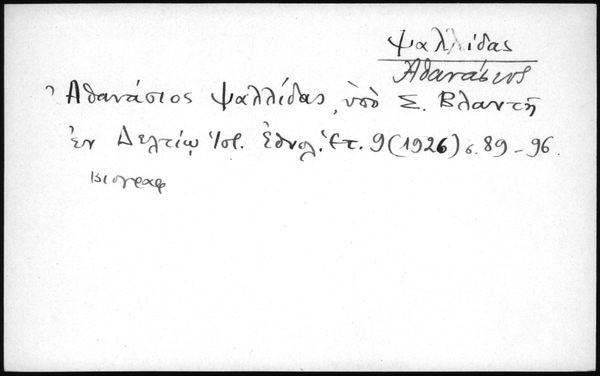 Ψαλλίδας
Ἀθανάσιος
Ἀθανάσιος Ψαλλίδας, ὑπὸ Σ. Βλαντῆ
ἐν Δελτίῳ Ἱστ. Ἐθνολ. Ἑτ. 9 (1926) σ. 89-96.
βιογραφ